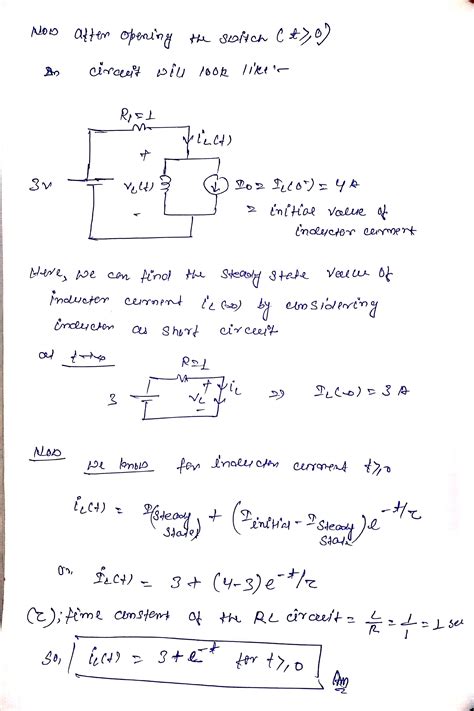 Now after opening the switch (t≥0)
circuit will look like:-
R₁=1
iL(t)
+
3v
vL(t)
I0 = IL(0⁻) = 4A
-
= initial value of
inductor current
Here, we can find the steady state value of
inductor current iL(∞) by considering
inductor as short circuit
at t→∞
R=1
3
+
vL
-
iL
⇒ IL(∞) = 3A
Now we know for inductor current t≥0
iL(t) = I(steady state) + (Iinitial - Isteady state) e^-t/τ
or, IL(t) = 3 + (4-3) e^-t/τ
(τ); time constant of the RL circuit = L/R = 1/1 = 1 sec
So, iL(t) = 3 + e^-t for t≥0
Ans